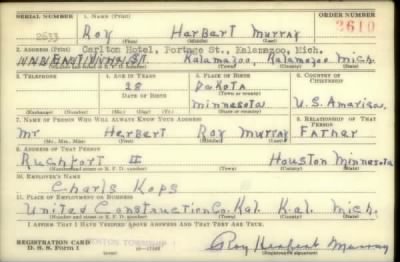 SERIAL NUMBER 1. NAME (Print) ORDER NUMBER
2633 Roy Harbart Murray 2610
(First) (Middle) (Last)
2. ADDRESS (Print) Carlton Hotel, Portage St., Kalamazoo, Mich.
Kalamazoo, Kalamazoo Mich.
(Number and street or R. F. D. number) (Town) (County) (State)
3. TELEPHONE 4. AGE IN YEARS 5. PLACE OF BIRTH 6. COUNTRY OF CITIZENSHIP
28 Dakota
DATE OF BIRTH (Town or county)
Minnesota U.S. Amarica.
(Exchange) (Number) (Mo.) (Day) (Yr.) (State or country)
7. NAME OF PERSON WHO WILL ALWAYS KNOW YOUR ADDRESS 8. RELATIONSHIP OF THAT PERSON
Mr Herbert Roy Murray Father
(Mr., Mrs., Miss) (First) (Middle) (Last)
9. ADDRESS OF THAT PERSON
Rushfort II Houston Minnesota
(Number and street or R. F. D. number) (Town) (County) (State)
10. EMPLOYER'S NAME
Charls Kops
11. PLACE OF EMPLOYMENT OR BUSINESS
United Construction Co. Kal. Kal. Mich.
(Number and street or R. F. D. number) (Town) (County) (State)
I AFFIRM THAT I HAVE VERIFIED ABOVE ANSWERS AND THAT THEY ARE TRUE.
REGISTRATION CARD TOWNSHIP
D. S. S. Form 1 16—17105 Roy Herbert Murray
(Registrant's signature)